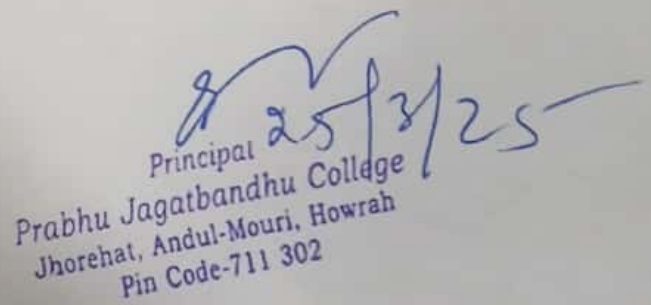 25/3/25
Principal
Prabhu Jagatbandhu College
Jhorehat, Andul-Mouri, Howrah
Pin Code-711 302